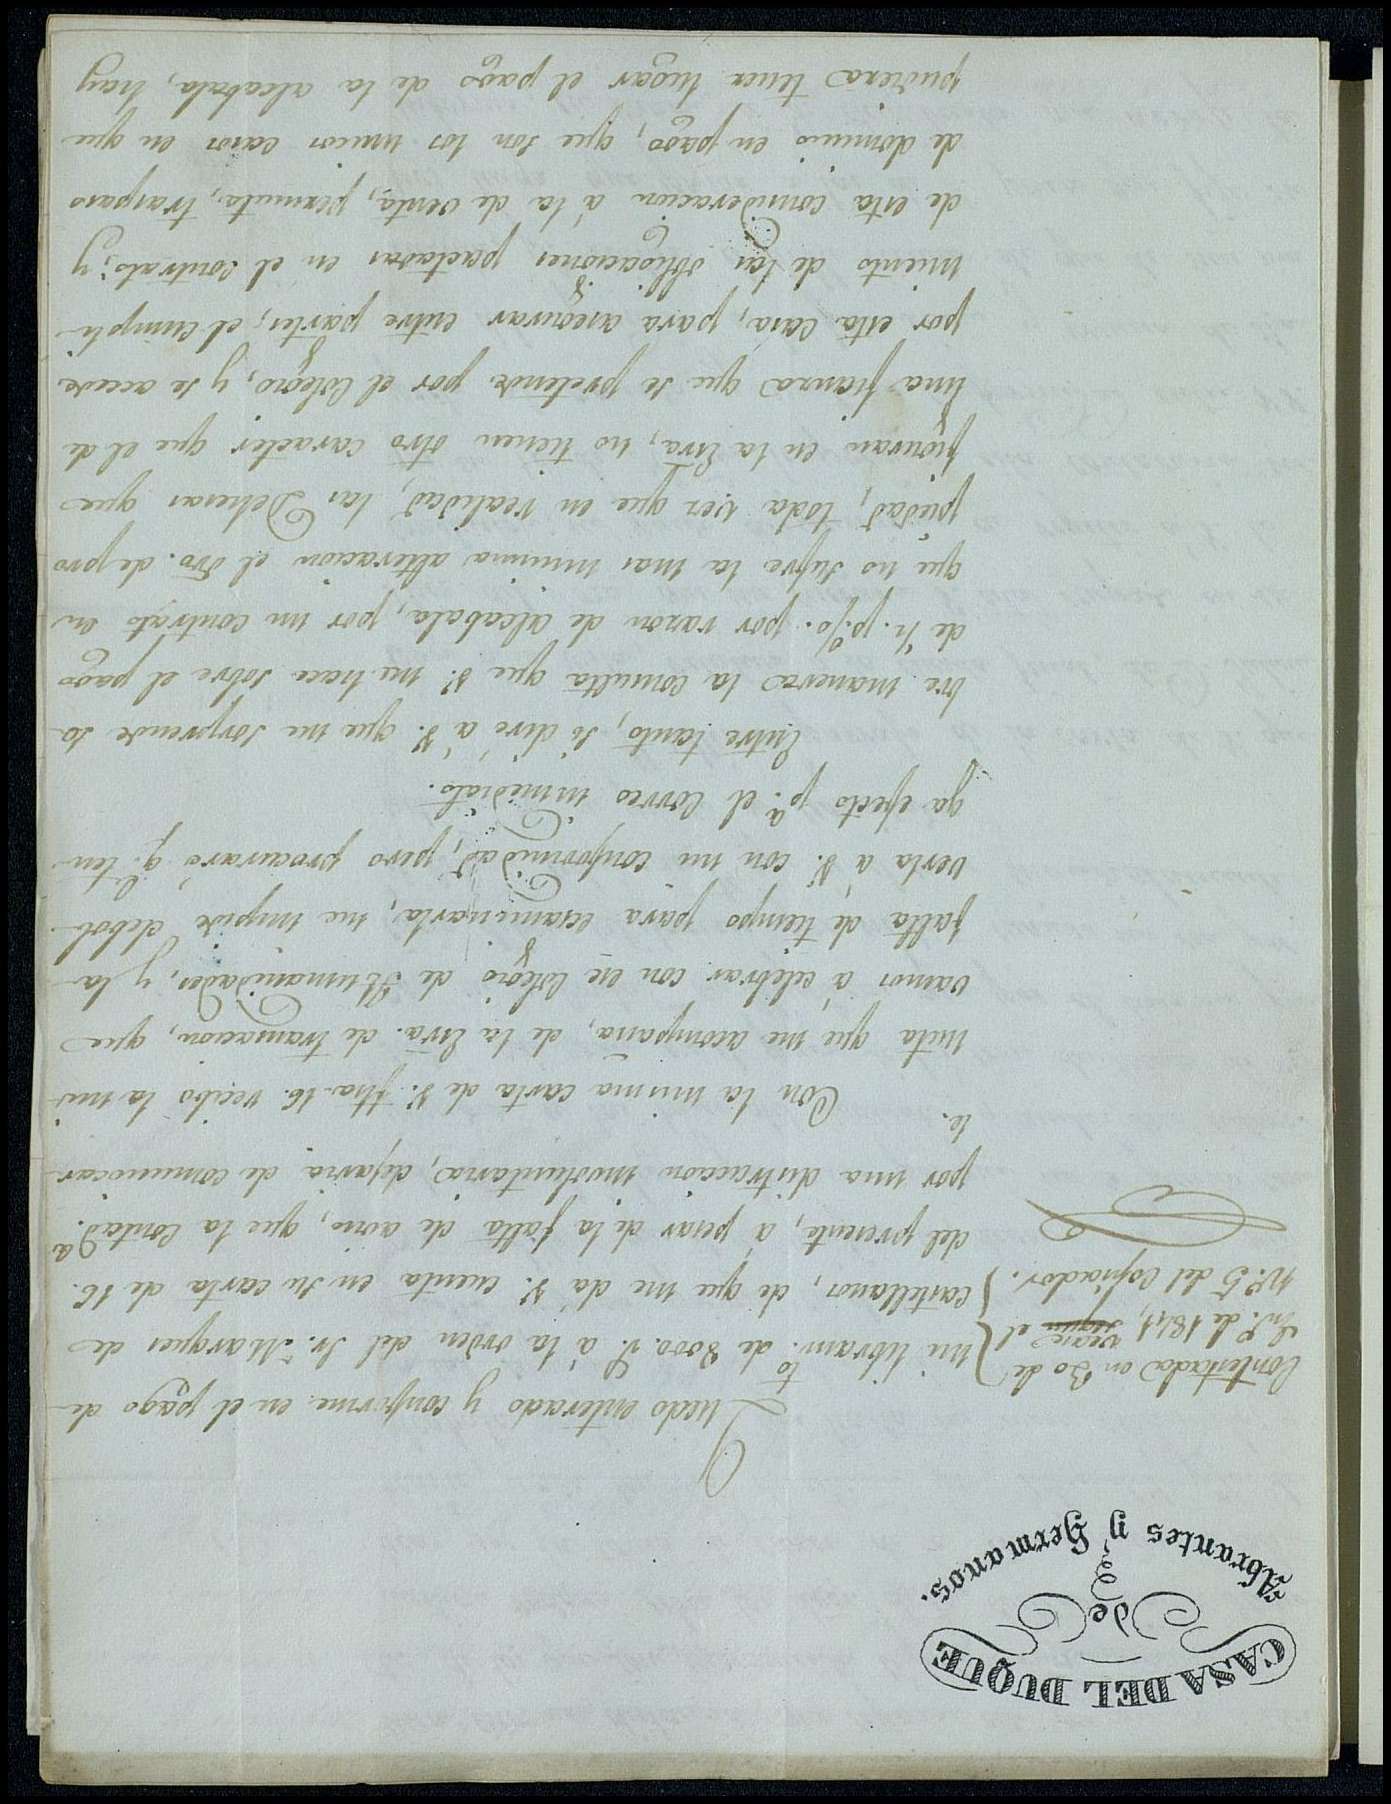 CASA DEL DUQUE
de
Abrantes y Hermanos.
Contestada en 30 de
En.º de 1841, vease el
Nº. 5 del Copiador.
Quedo enterado y conforme en el pago de
mi libram.to de 8000. r.s á la orden del Sr. Marques de
castellanos, de que me dá V. cuenta en su carta de 16.
del presente, á pesar de la falta de aviso, que la Contad.a
por una distraccion involuntaria, dejaria de comunicar
le.
Con la misma carta de V. fha. 16. recibo la mi
nuta que me acompaña, de la Esra. de transacion, que
vamos á celebrar con ese Colegio de Humanidades, y la
falta de tiempo para ecsaminarla, me impide debol
verla á V. con mi conformidad, pero procuraré, q.e ten
ga efecto p.a el Correo inmediato.
Entre tanto, si diré á V. que me sorprende so
bre manera la consulta que V. me hace sobre el pago
de 4. p.% por razon de alcabala, por un contrato en
que no sufre la mas minima alteracion el dro. de pro
piedad, toda vez que en realidad, las Dehesas que
figuran en la Esra, no tienen otro caracter que el de
una fianza que se pretende por el Colegio, y se accede
por esta Casa, para asegurar entre partes, el cumpli
miento de las obligaciones pactadas en el contrato; y
de esta consideracion á la de venta, permuta, traspaso
de dominio en pago, que son los unicos casos en que
pudiera tener lugar el pago de la alcabala, hay